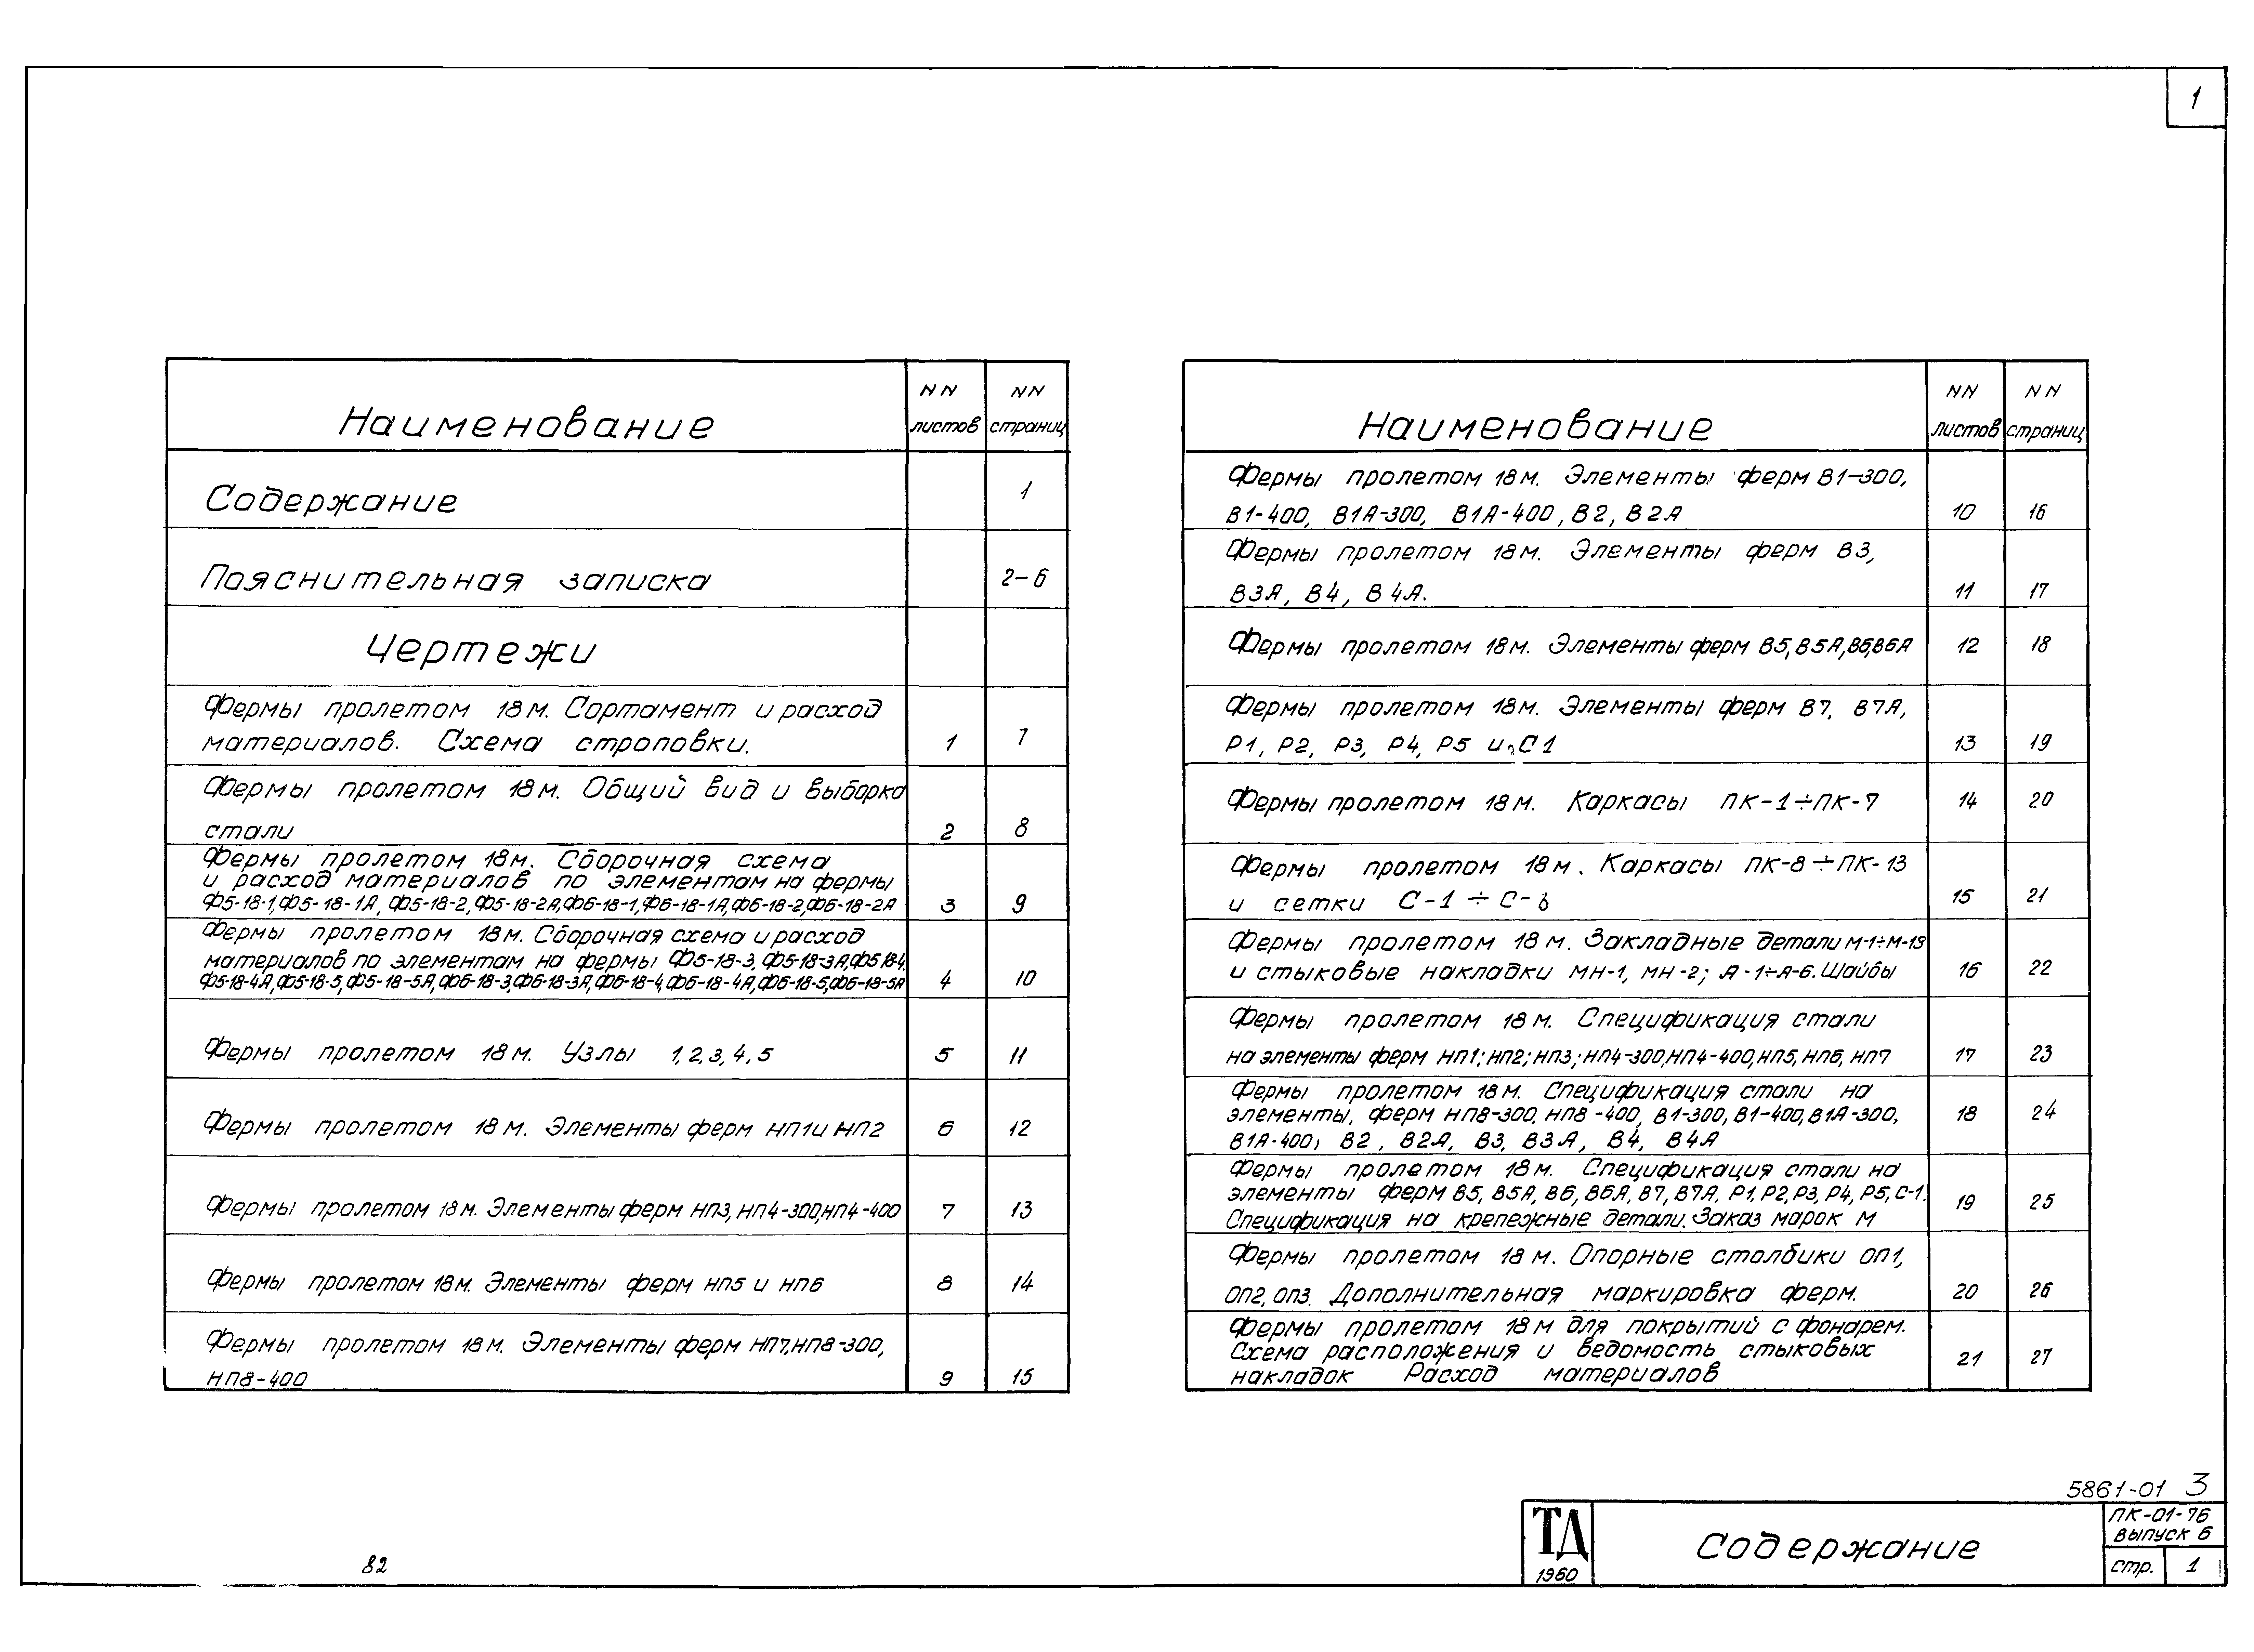 1
Наименование NN листов NN страниц
Содержание 1
Пояснительная записка 2-6
Чертежи
Фермы пролетом 18м. Сортамент и расход
материалов. Схема строповки. 1 7
Фермы пролетом 18м. Общий вид и выборка
стали 2 8
Фермы пролетом 18м. Сборочная схема
и расход материалов по элементам на фермы
Ф5-18-1, Ф5-18-1А, Ф5-18-2, Ф5-18-2А, Ф6-18-1, Ф6-18-1А, Ф6-18-2, Ф6-18-2А 3 9
Фермы пролетом 18м. Сборочная схема и расход
материалов по элементам на фермы Ф5-18-3, Ф5-18-3А, Ф5 18-4,
Ф5-18-4А, Ф5-18-5, Ф5-18-5А, Ф6-18-3, Ф6-18-3А, Ф6-18-4, Ф6-18-4А, Ф6-18-5, Ф6-18-5А 4 10
Фермы пролетом 18м. Узлы 1, 2, 3, 4, 5 5 11
Фермы пролетом 18м. Элементы ферм НП1 и НП2 6 12
Фермы пролетом 18м. Элементы ферм НП3, НП4-300, НП4-400 7 13
Фермы пролетом 18м. Элементы ферм НП5 и НП6 8 14
Фермы пролетом 18м. Элементы ферм НП7, НП8-300,
НП8-400 9 15
Наименование NN листов NN страниц
Фермы пролетом 18м. Элементы ферм В1-300,
В1-400, В1А-300, В1А-400, В2, В2А 10 16
Фермы пролетом 18м. Элементы ферм В3,
В3А, В4, В4А. 11 17
Фермы пролетом 18м. Элементы ферм В5, В5А, В6, В6А 12 18
Фермы пролетом 18м. Элементы ферм В7, В7А,
Р1, Р2, Р3, Р4, Р5 и С1 13 19
Фермы пролетом 18м. Каркасы ПК-1÷ПК-7 14 20
Фермы пролетом 18м. Каркасы ПК-8÷ПК-13
и сетки С-1÷С- 15 21
Фермы пролетом 18м. Закладные детали М-1÷М-13
и стыковые накладки МН-1, МН-2; А-1÷А-6. Шайбы 16 22
Фермы пролетом 18м. Спецификация стали
на элементы ферм НП1; НП2; НП3; НП4-300, НП4-400, НП5, НП6, НП7 17 23
Фермы пролетом 18м. Спецификация стали на
элементы, ферм НП8-300, НП8-400, В1-300, В1-400, В1А-300,
В1А-400, В2, В2А, В3, В3А, В4, В4А 18 24
Фермы пролетом 18м. Спецификация стали на
элементы ферм В5, В5А, В6, В6А, В7, В7А, Р1, Р2, Р3, Р4, Р5, С-1.
Спецификация на крепежные детали. Заказ марок М 19 25
Фермы пролетом 18м. Опорные столбики ОП1,
ОП2, ОП3. Дополнительная маркировка ферм. 20 26
Фермы пролетом 18м для покрытий с фонарем.
Схема расположения и ведомость стыковых
накладок Расход материалов 21 27
5861-01 3
ТД
1960
Содержание
ПК-01-76
выпуск 6
стр. 1
82